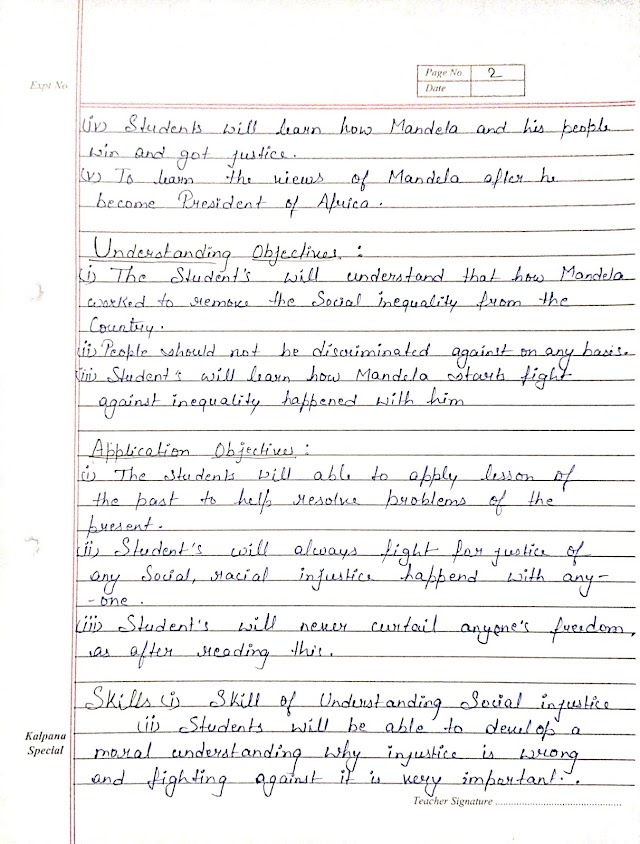 Page No 2
Expt No.
Date
(iv) Students will learn how Mandela and his people
win and got justice.
(v) To learn the views of Mandela after he
become President of Africa.
Understanding Objectives :
(i) The Student's will understand that how Mandela
worked to remove the Social inequality from the
Country.
(ii) People should not be discriminated against on any basis.
(iii) Student's will learn how Mandela starts fight
against inequality happened with him
Application Objectives :
(i) The students will able to apply lesson of
the past to help resolve problems of the
present.
(ii) Student's will always fight for justice of
any Social, racial injustice happend with any-
-one.
(iii) Student's will never curtail anyone's freedom,
as after reading this.
Skills (i) Skill of Understanding Social injustice
(ii) Students will be able to develop a
moral understanding why injustice is wrong
and fighting against it is very important.
Kalpana
Special
Teacher Signature